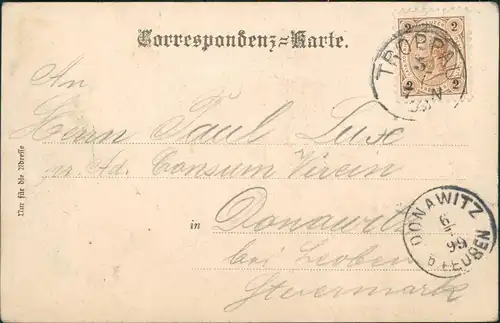 Correspondenz-Karte.
2 2
2 2
TROPPAU
An
Herrn Paul Lux
pr. Ad. Consum Verein
in Donawitz
bei Leoben
Steiermark
Nur für die Adresse
DONAWITZ
6
99
b. LEOBEN